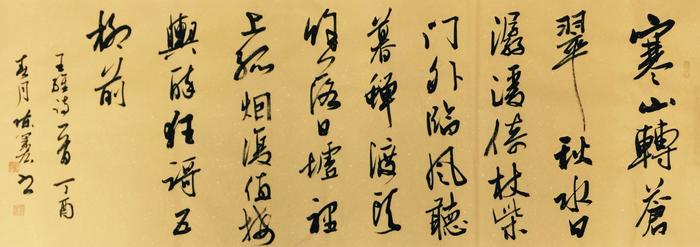 寒山轉蒼
翠秋水日
潺湲倚杖柴
門外臨風聽
暮蟬渡頭
馀落日墟裡
上孤烟復值接
輿醉狂謌五
柳前
王維诗一首 丁酉
春月